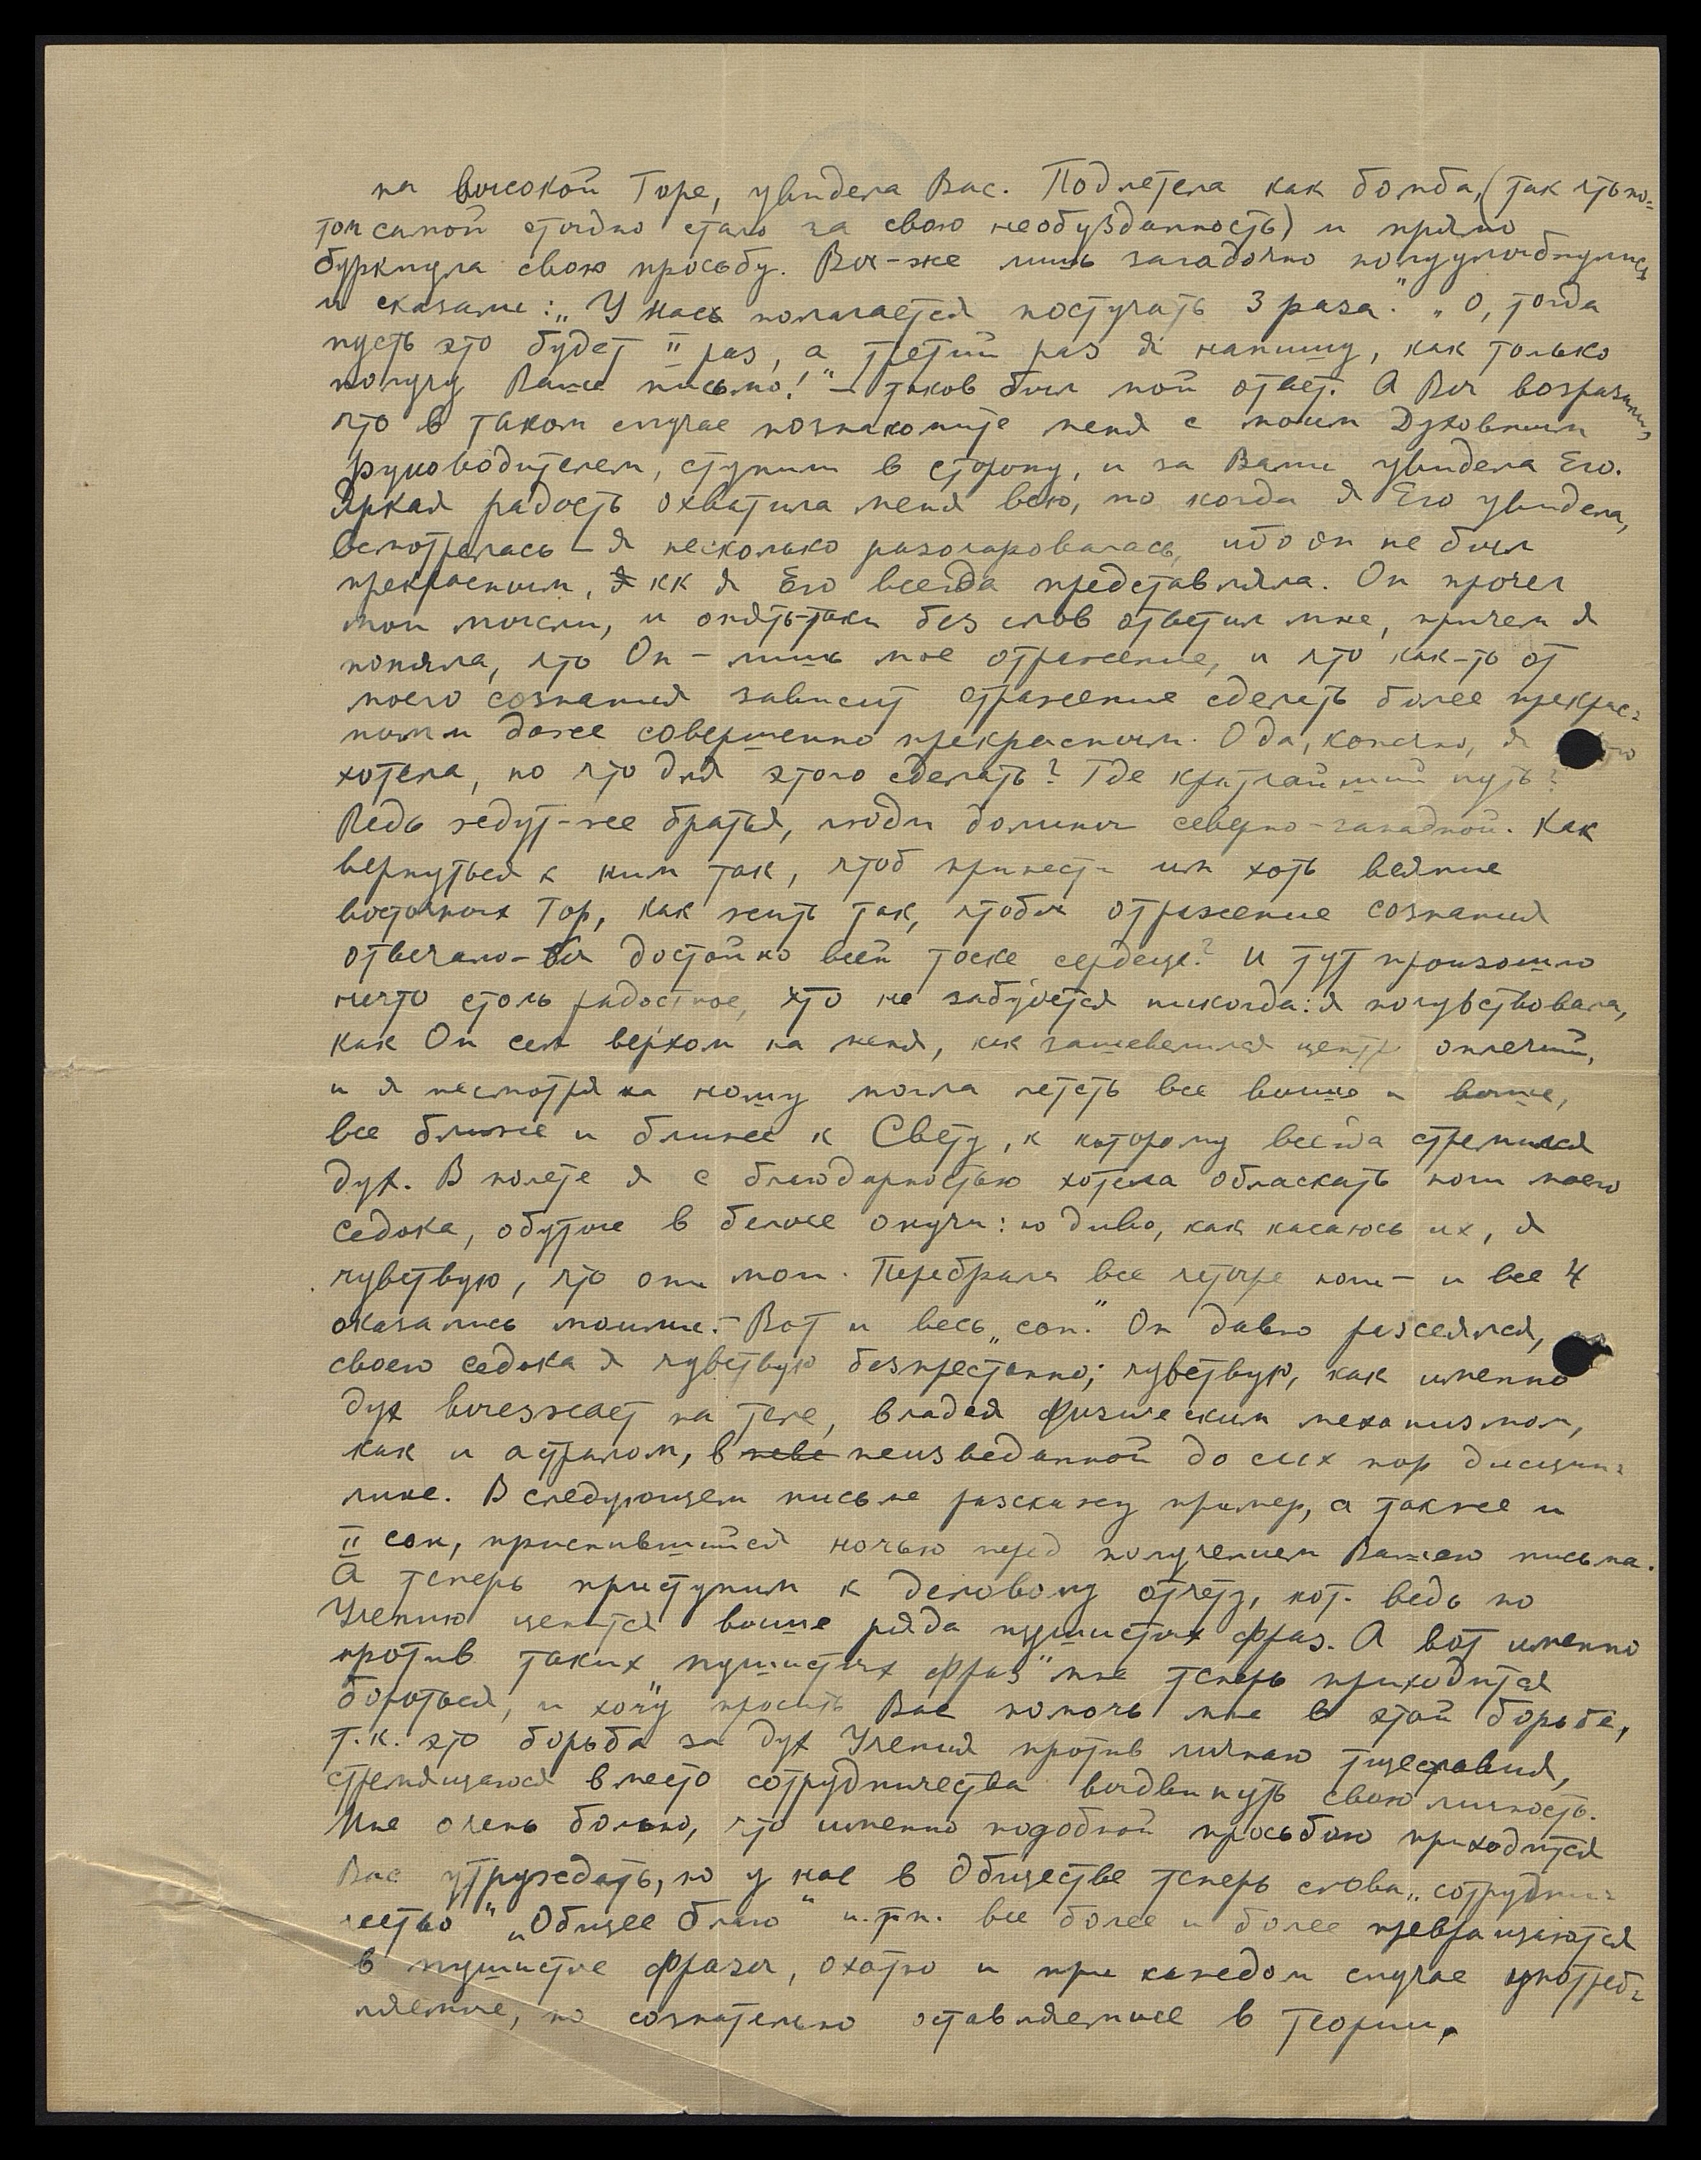 на высокой Горе, увидела Вас. Подлетела как бомба, (так что по=
том самой стыдно стало за свою необузданность) и прямо
буркнула свою просьбу. Вы-же лишь загадочно полуулыбнулись
и сказали: „У нас полагается постучать 3 раза." „О, тогда
пусть это будет II раз, а третий раз я напишу, как только
получу Ваше письмо!" – таков был мой ответ. А Вы возразили,
что в таком случае познакомите меня с моим Духовным
руководителем, ступили в сторону, и за Вами увидела Его.
Яркая радость охватила меня всю, но когда я Его увидела,
всмотрелась – я несколько разочаровалась, ибо он не был
прекрасным, кк я Его всегда представляла. Он прочел
мои мысли, и опять-таки без слов ответил мне, причем я
поняла, что Он – лишь мое отражение, и что как-то от
моего сознания зависит отражение сделать более прекрас=
ным и даже совершенно прекрасным. О да, конечно, я
хотела, но что для этого сделать? Где кратчайший путь?
Ведь ждут-же братья, люди долины северно-западной. Как
вернуться к ним так, чтоб принести им хоть веяние
восточных Гор, как жить так, чтобы отражение сознания
отвечало-бы достойно всей тоске сердца? И тут произошло
нечто столь радостное, что не забудется никогда: я почувствовала,
как Он сел верхом на меня, как зашевелился центр оплечий,
и я несмотря на ношу могла лететь все выше и выше,
все ближе и ближе к Свету, к которому всегда стремился
дух. В полете я с благодарностью хотела обласкать ноги моего
седока, обутые в белые онучи: о диво, как касаюсь их, я
чувствую, что они мои. Перебрала все четыре ноги – и все 4
оказались моими. – Вот и весь „сон." Он давно рассеялся,
своего седока я чувствую безпрестанно; чувствую, как именно
дух выезжает на теле, владея физическим механизмом,
как и астралом, в неизведанной до сих пор дисцип=
лине. В следующем письме разскажу пример, а также и
II сон, приснившийся ночью перед получением Вашего письма.
А теперь приступим к деловому отчету, кот. ведь по
Учению ценится выше ряда пушистых фраз. А вот именно
против таких „пушистых фраз" мне теперь приходится
бороться, и хочу просить Вас помочь мне в этой борьбе,
т.к. это борьба за дух Учения против личного тщеславия,
стремящегося вместо сотрудничества выдвинуть свою личность.
Мне очень больно, что именно подобной просьбою приходится
Вас утруждать, но у нас в Обществе теперь слова „сотрудни=
чество" „Общее благо" и.т.п. все более и более превращаются
в пушистые фразы, охотно и при каждом случае употреб=
ляемые, но сознательно оставляемые в теории.